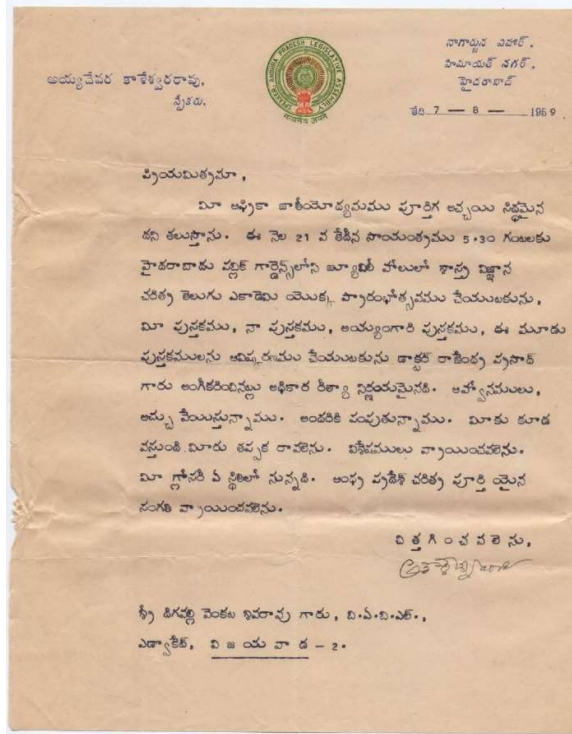 అయ్యదేవర కాళేశ్వరరావు,
స్పీకరు.
SPEAKER ANDHRA PRADESH LEGISLATIVE ASSEMBLY
सत्यमेव जयते
నాగార్జున విహార్.
హిమాయత్ నగర్.
హైదరాబాద్
తేది 7 — 8 — 1959
ప్రియమిత్రమా,
మీ ఆఫ్రికా జాతీయోద్యమము పూర్తిగ అచ్చయి సిద్ధమైన
దని తలుస్తాను. ఈ నెల 21 వ తేదీన సాయంత్రము 5.30 గంటలకు
హైదరాబాదు పబ్లిక్ గార్డెన్స్‌లోని జ్యూబిలీ హాలులో శాస్త్ర విజ్ఞాన
చరిత్ర తెలుగు ఎకాడెమి యొక్క ప్రారంభోత్సవము చేయుటకును,
మీ పుస్తకము, నా పుస్తకము, అయ్యంగారి పుస్తకము, ఈ మూడు
పుస్తకములను ఆవిష్కరణము చేయుటకును డాక్టర్ రాజేంద్ర ప్రసాద్
గారు అంగీకరించినట్లు అధికార రీత్యా నిర్ణయమైనది. ఆహ్వానములు,
అచ్చు వేయిస్తున్నాము. అందరికి పంపుతున్నాము. మీకు కూడ
వస్తుంది.మీరు తప్పక రావలెను. విశేషములు వ్రాయించవలెను.
మీ గ్లోసరీ ఏ స్థితిలో నున్నది. ఆంధ్ర ప్రదేశ్ చరిత్ర పూర్తి యైన
సంగతి వ్రాయించవలెను.
చిత్తగించవలెను,
శ్రీ దిగవల్లి వెంకట శివరావు గారు, బి.ఏ.బి.ఎల్.,
ఎడ్వొకేట్, విజయవాడ - 2.